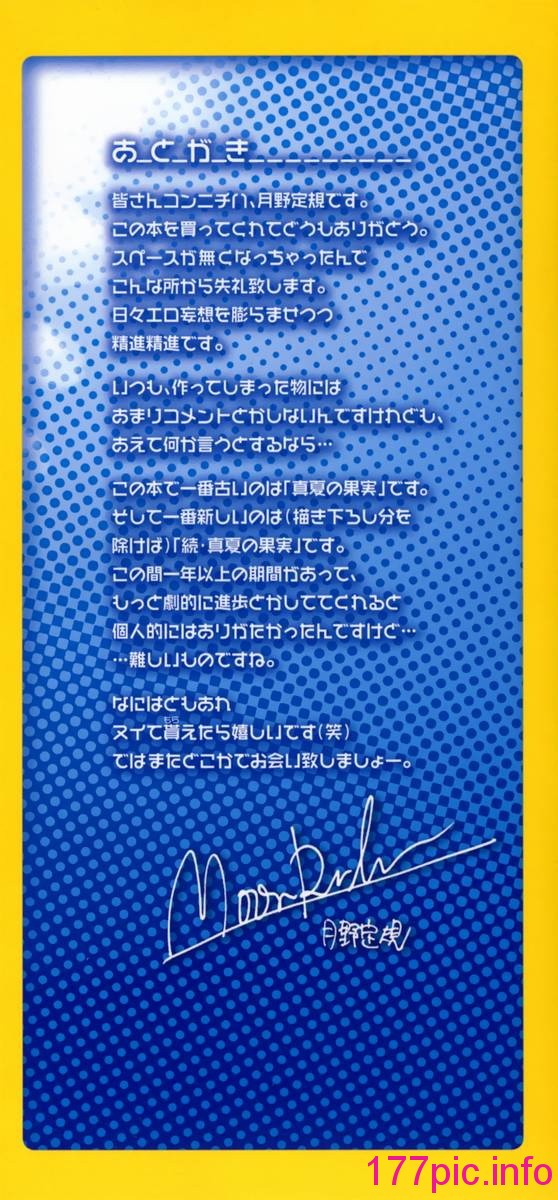 あ_と_が_き_________
皆さんコンニチハ、月野定規です。
この本を買ってくれてどうもありがとう。
スペースが無くなっちゃったんで
こんな所から失礼致します。
日々エロ妄想を膨らませつつ
精進精進です。
いつも、作ってしまった物には
あまりコメントとかしないんですけれども、
あえて何か言うとするなら…
この本で一番古いのは「真夏の果実」です。
そして一番新しいのは(描き下ろし分を
除けば)「続・真夏の果実」です。
この間一年以上の期間があって、
もっと劇的に進歩とかしててくれると
個人的にはありがたかったんですけど…
…難しいものですね。
なにはともあれ
もら
ヌイて貰えたら嬉しいです(笑)
ではまたどこかでお会い致しましょー。
MoonRuler
月野定規
177pic.info